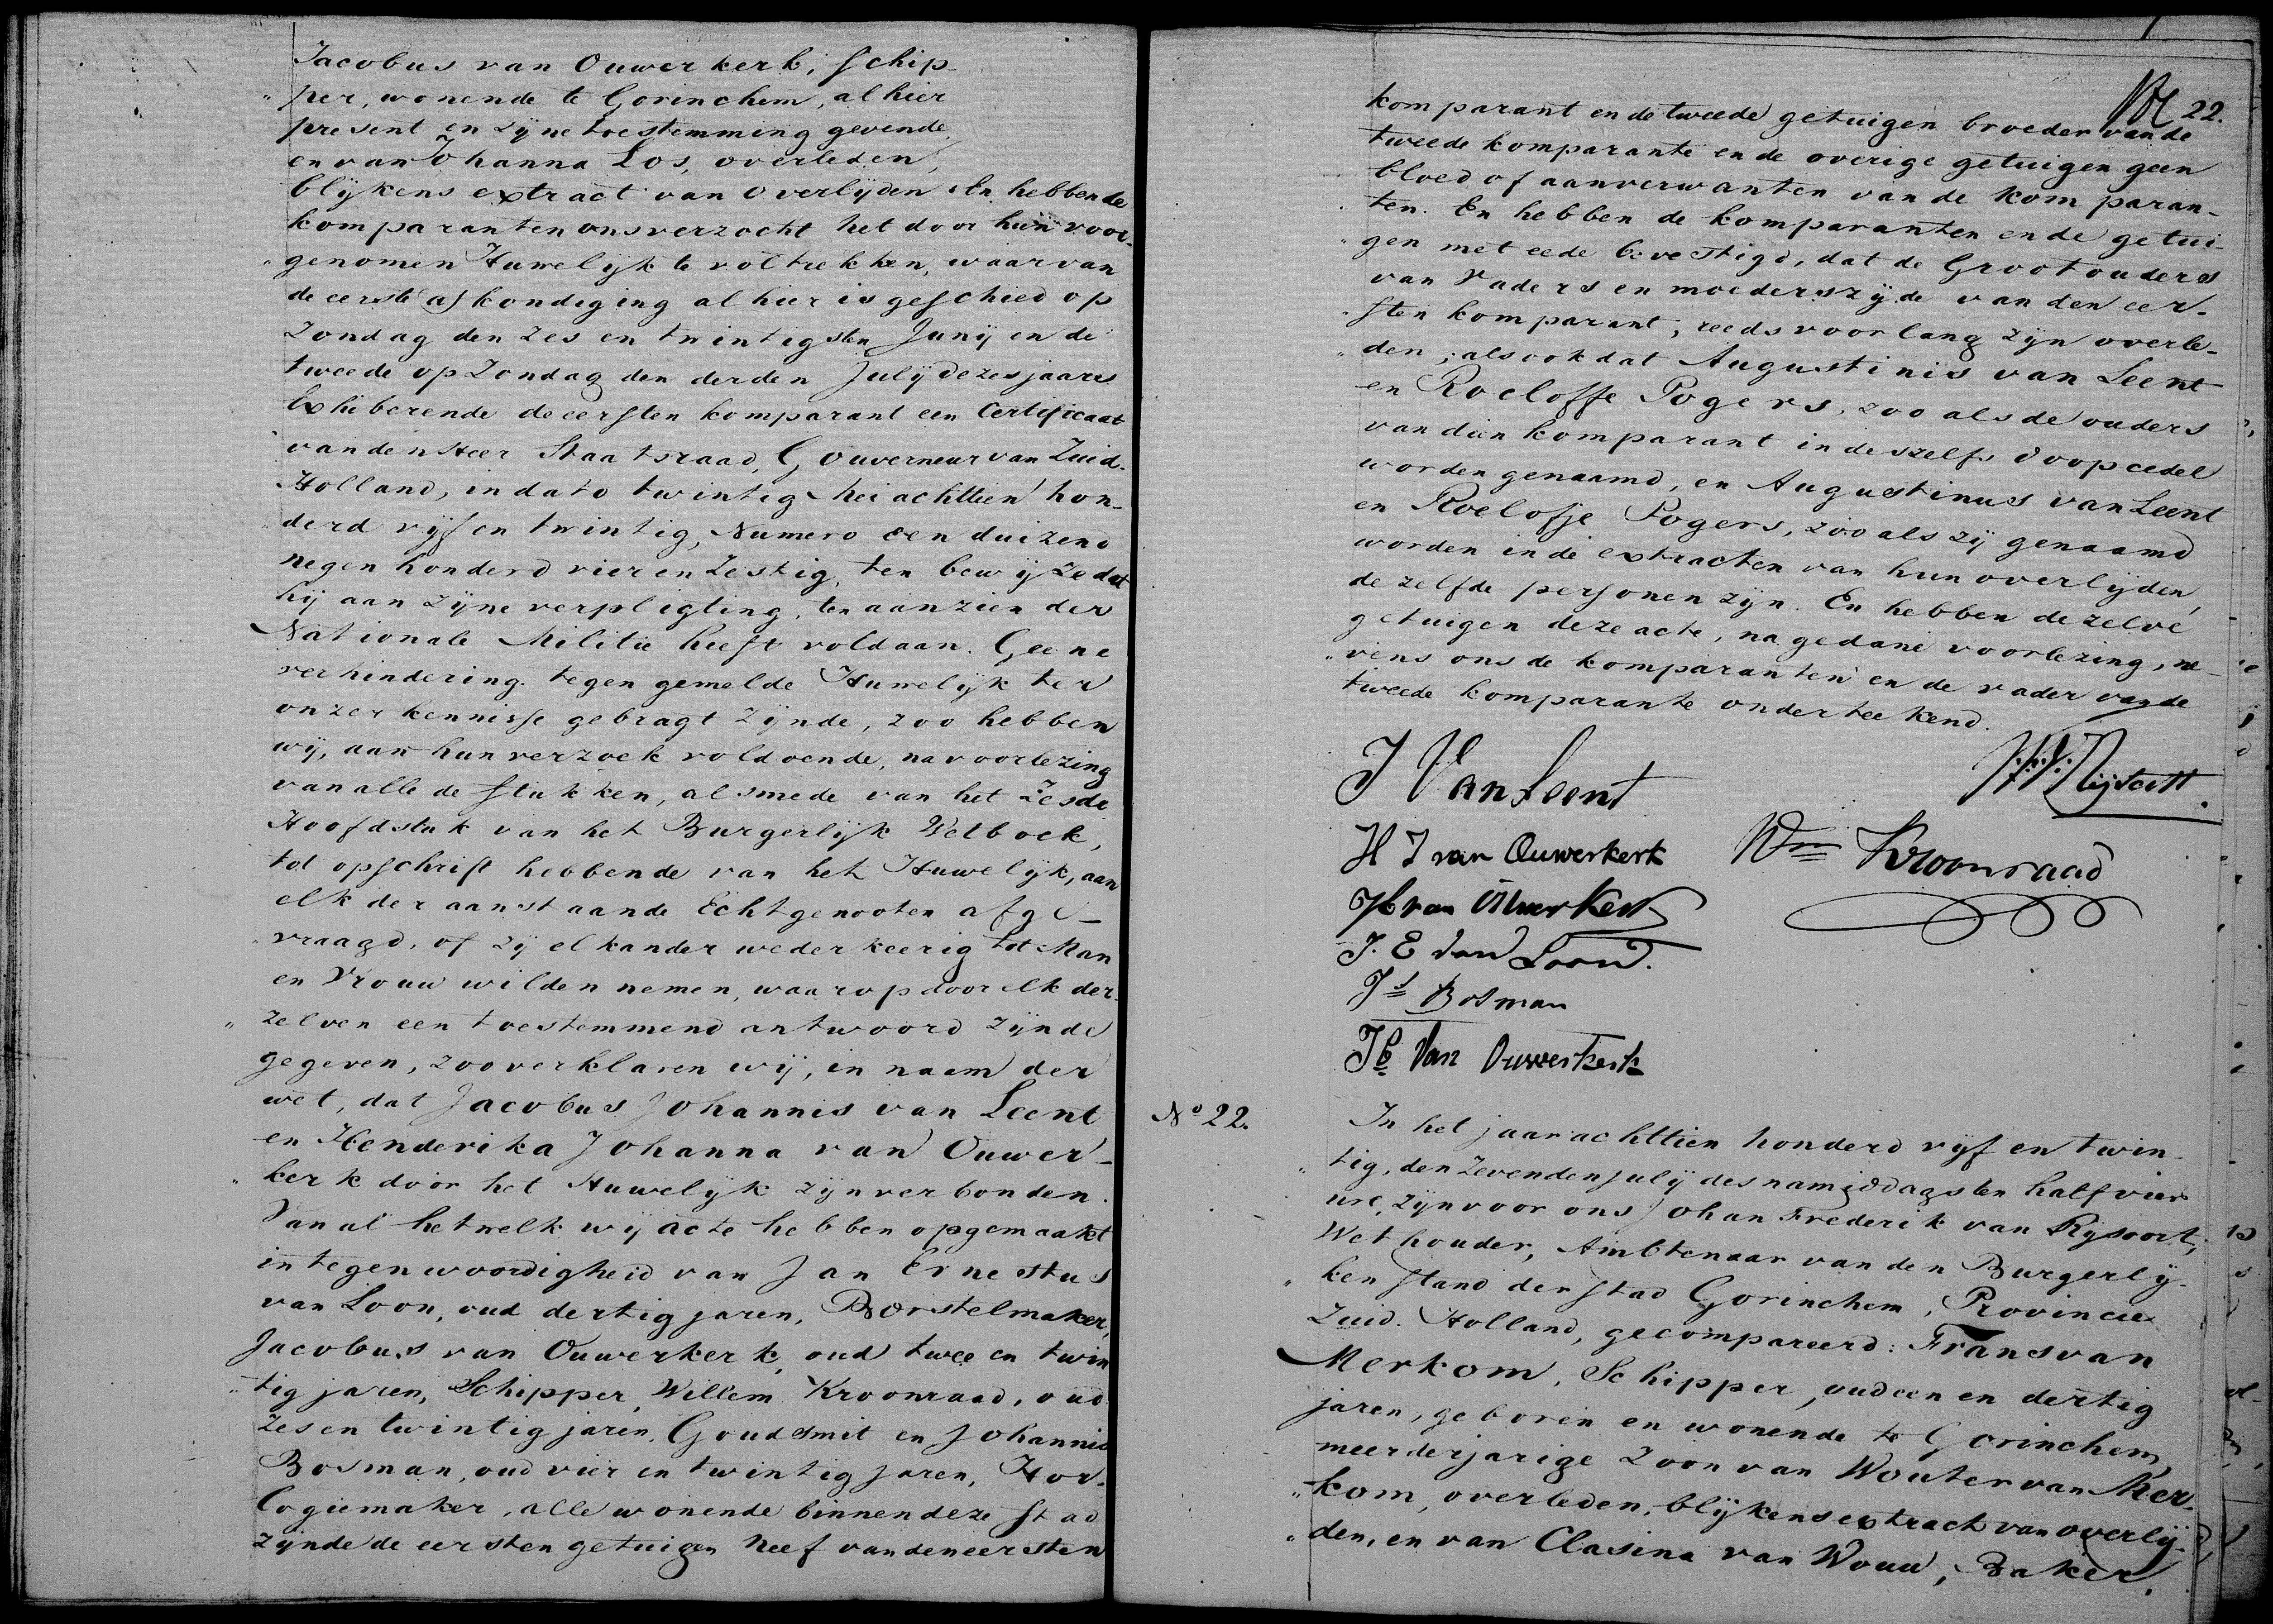 Jacobus van Ouwerkerk, Schip-
"per, wonende te Gorinchem, alhier
present en zijne toestemming gevende
en van Johanna Los, overleden,
blijkens extract van overlijden. En hebben de
komparanten ons verzocht het door hun voor-
"genomen Huwelijk te voltrekken, waarvan
de eerste afkondiging alhier is geschied op
Zondag den zes en twintigsten Junij en de
tweede op Zondag den derden Julij dezes jaars
Exhiberende de eersten komparant een Certificaat
van den Heer Staatsraad, Gouverneur van Zuid-
Holland, in dato twintig Mei achttien hon-
"derd vijf en twintig, Numero een duizend
negen honderd vier en Zestig, ten bewijze dat
hij aan zijne verpligting, ten aanzien der
Nationale Militie heeft voldaan. Geene
verhindering tegen gemelde Huwelijk ter
onzer kennisse gebragt zijnde, zoo hebben
wij, aan hun verzoek voldoende, na voorlezing
van alle de stukken, alsmede van het Zesde
Hoofdstuk van het Burgerlijk Wetboek,
tot opschrift hebbende van het Huwelijk, aan
elk der aanstaande Echtgenooten afge-
"vraagd, of zij elkander wederkeerig tot Man
en Vrouw wilden nemen, waarop door elk der-
"zelven een toestemmend antwoord zijnde
gegeven, zoo verklaren wij, in naam der
wet, dat Jacobus Johannis van Leent
en Henderika Johanna van Ouwer-
"kerk door het Huwelijk zijn verbonden.
Van al hetwelk wij acte hebben opgemaakt
in tegenwoordigheid van Jan Ernestus
van Loon, oud dertig jaren, Borstelmaker,
Jacobus van Ouwerkerk, oud twee en twin
"tig jaren, Schipper, Willem Kroonraad, oud
zes en twintig jaren, Goudsmit en Johannis
Bosman, oud vier en twintig jaren, Hor-
logiemaker, alle wonende binnen deze stad
zijnde de eersten getuigen Neef van den eersten
22.
komparant en de tweede getuigen broeder van de
tweede komparante en de overige getuigen geen
bloed of aanverwanten van de komparan-
"ten. En hebben de komparanten en de getui-
"gen met eede bevestigd, dat de Grootouders
van Vaders en moederszijde van den eer-
"sten komparant, reeds voor lang zijn overle-
"den; alsook dat Augustinis van Leent
en Roeloffe Pogers, zoo als de ouders
van dien komparant in deszelfs doopcedel
worden genaamd, en Augustinus van Leent
en Roelofje Pogers, zoo als zij genaamd
worden in de extracten van hun overlijden,
dezelfde personen zijn. En hebben dezelve
getuigen deze acte, na gedane voorlezing, ne-
"vens ons de komparanten en de vader van de
tweede komparante onderteekend.
J Van Leent
H J van Ouwerkerk
Wm Kroonraad
J. E van Loon.
Js Bosman
Jb Van Ouwerkerk
No 22.
In het jaar achttien honderd vijf en twin-
"tig, den zevenden Julij des namiddags ten half vier
ure, zijn voor ons Johan Frederik van Rijsoort,
Wethouder, Ambtenaar van den Burgerlij-
"ken stand der stad Gorinchem, Provincie
Zuid-Holland, gecompareerd: Frans van
Merkom, Schipper, oud een en dertig
jaren, geboren en wonende te Gorinchem,
meerderjarige Zoon van Wouter van Mer-
"kom, overleden, blijkens extract van overlij-
"den, en van Clasina van Wouw, Baker,